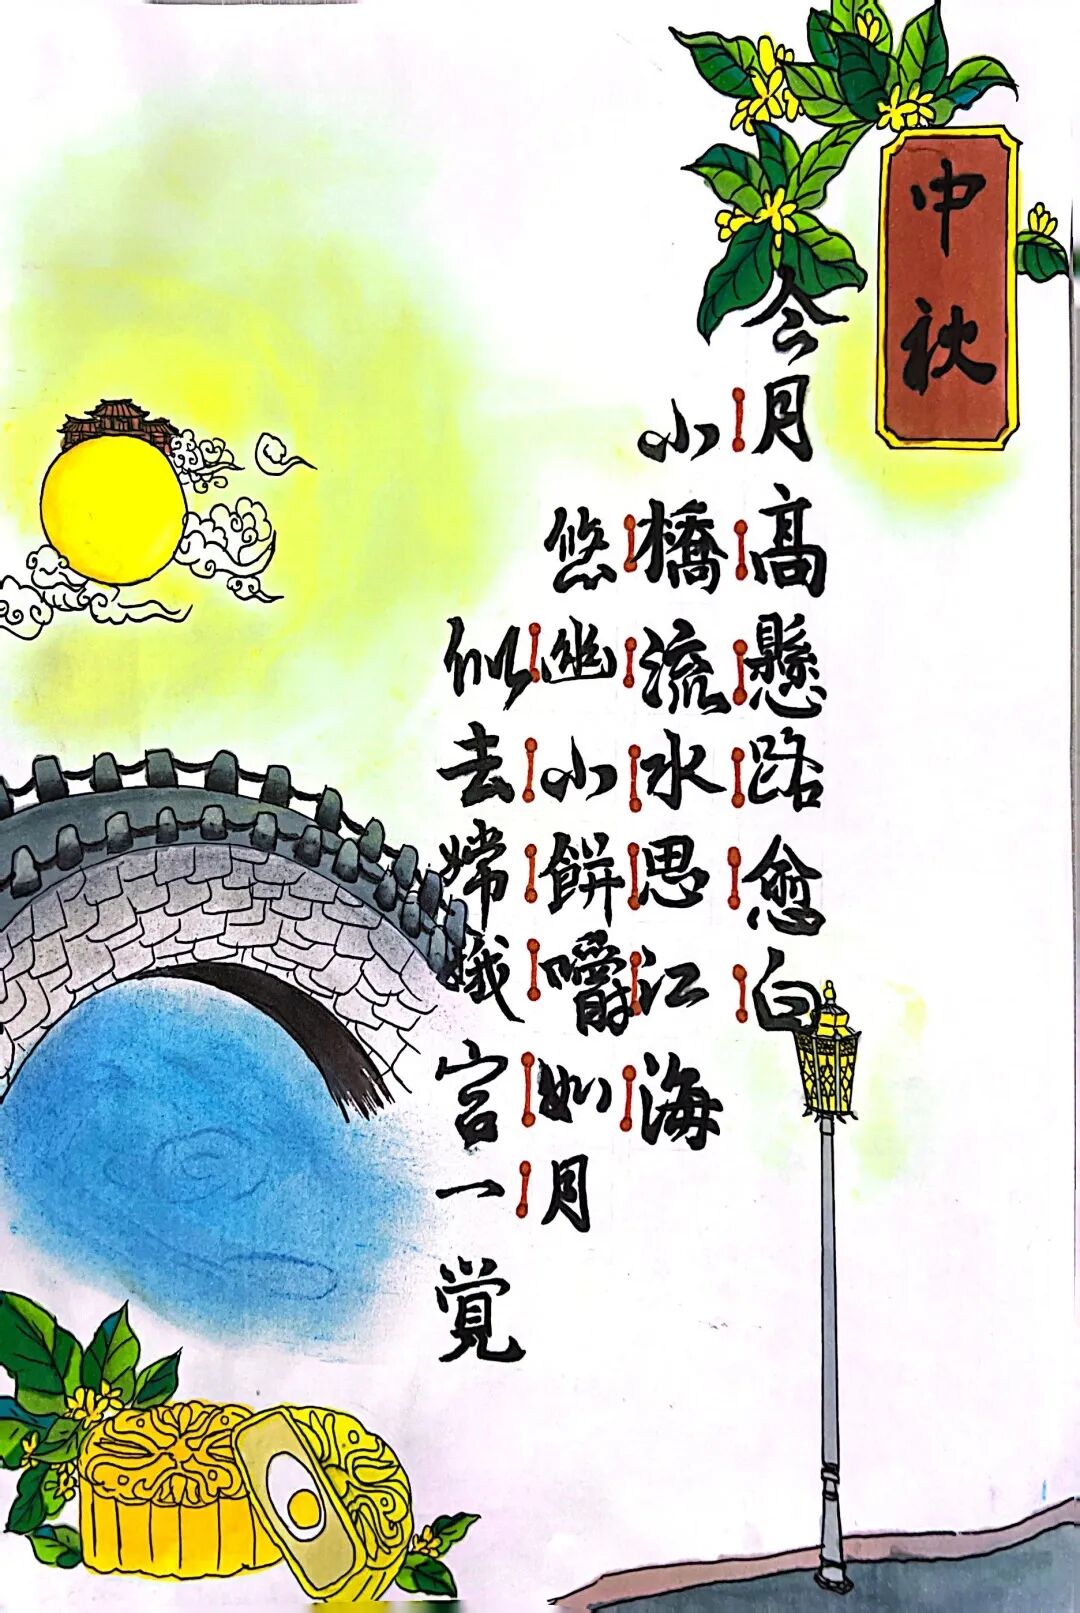 中秋
今月高懸路愈白
小橋流水思江海
悠幽小餅嚼如月
似去嫦娥宮一覚